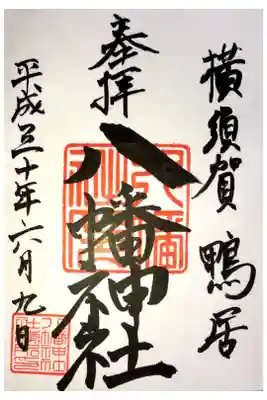 横須賀 鴨居
奉拝
八幡神社
平成三十年六月九日